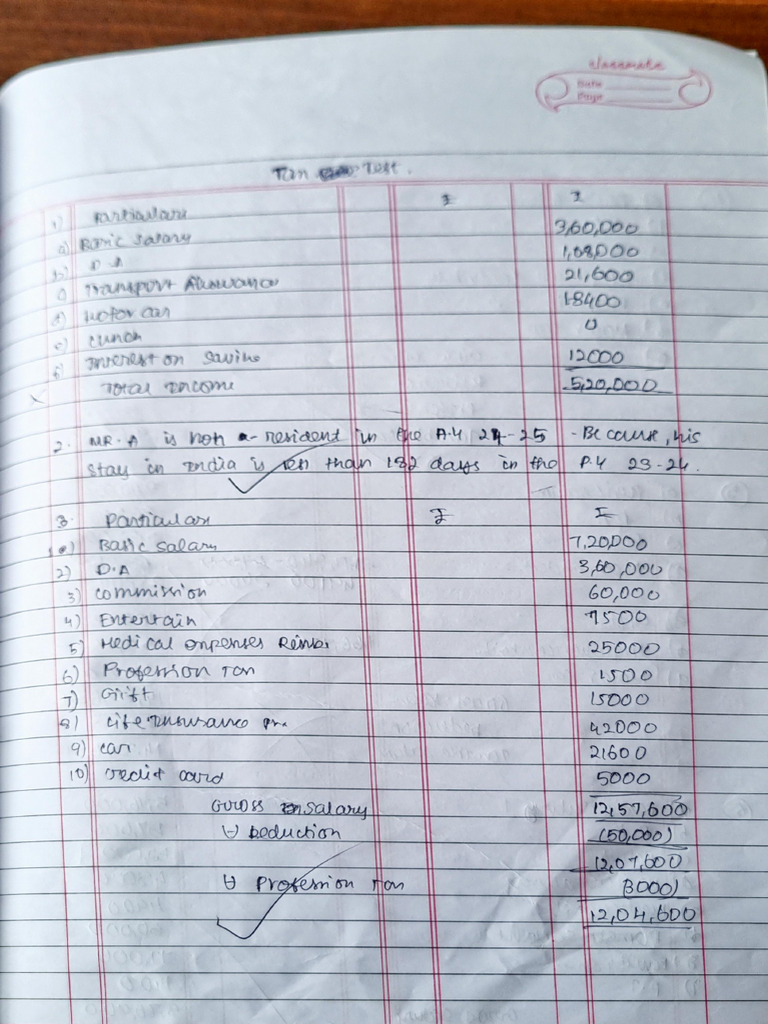 classmate
Date
Page
Tan Test.
1) Particulars ₹ ₹
a) Basic salary 3,60,000
b) D A 1,08,000
c) Transport Allowance 21,600
d) Motor car 18400
e) Lunch 0
f) Interest on Saving 12000
X Total Income 5,20,000
2. MR. A is not a resident in the A.Y 24-25 - Because, his
stay in India is less than 182 days in the P.Y 23-24.
3. Particulars ₹ ₹
1) Basic salary 7,20,000
2) D.A 3,60,000
3) commission 60,000
4) Entertain 7500
5) Medical expenses Reimb. 25000
6) Profession Tan 1500
7) Gift 15000
8) Life Insurance 42000
9) car 21600
10) credit card 5000
Gross salary 12,57,600
(-) Deduction (50,000)
12,07,600
(-) Profession Tan (3000)
12,04,600